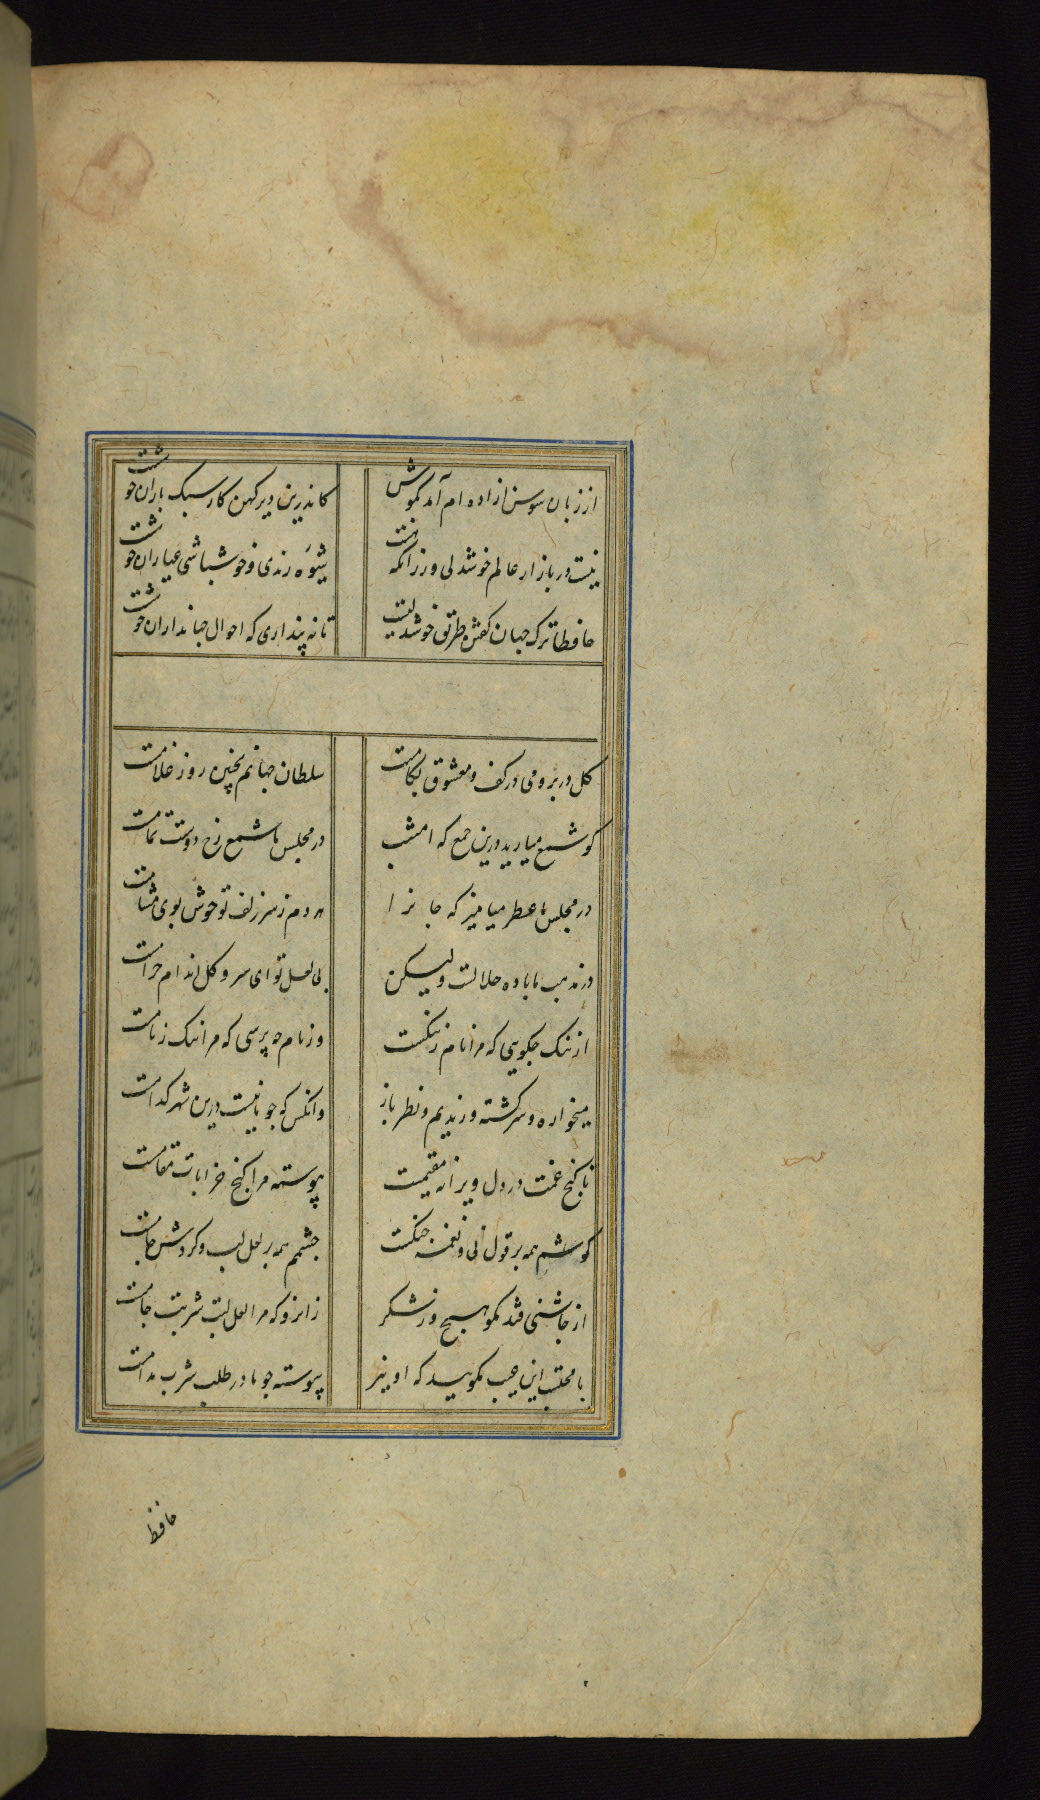 از زبان سوسن ازاده ام آمد بکوش	کاندرین دیر کهن کار سبک باران خوشت
نیست در بازار عالم خوشدلی ور زانکه هست	شیوه رندی و خوشباشی عیاران خوشت
حافظا ترک جهان کفتن طریق خوشدلیت	تا نه پنداری که احوال جهانداران خوشت
کل در بر و می در کف و معشوق بکامست	سلطان جهانم بچنین روز غلامت
کو شمع میارید درین جمع که امشب	در مجلس ما شمع رخ دوست تمامت
در مجلس ما عطر میامیز که جانرا	هر دم ز سر زلف تو خوش بوی مشامت
در مذهب ما باده حلالست ولیکن	بی لعل تو ای سرو کل اندام حرامت
از ننک چکویی که مرا نام ز ننکست	وز نام چه پرسی که مرا ننک ز نامت
میخواره و سرکشته و رندیم و نظرباز	وانکس که چو ما نیست درین شهر کدامت
تا کنج غمت در دل ویرانه مقیمست	پیوسته مرا کنج خرابات مقامست
کوشم همه بر قول نی و نغمه چنکست	چشمم همه بر لعل لب و کردش جامت
از چاشنی قند مکو هیچ و ز شکر	زانرو که مرا لعل لبت شربت جامت
با محتسب این عیب مکویید که او نیز	پیوسته چو ما در طلب شرب مدامت
حافظ